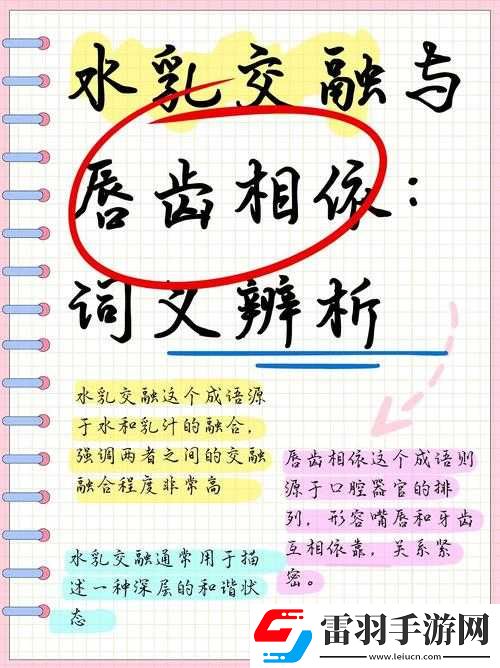 水乳交融与
唇齿相依：
词义辨析
水乳交融这个成语源
于水和乳汁的融合，
强调两者之间的交融
融合程度非常高
唇齿相依这个成语则
源于口腔器官的排
列，形容嘴唇和牙齿
互相依靠，关系紧
密。
水乳交融通常用于描
述一种深层的和谐状
态
雷羽手游网
www.leiucn.com